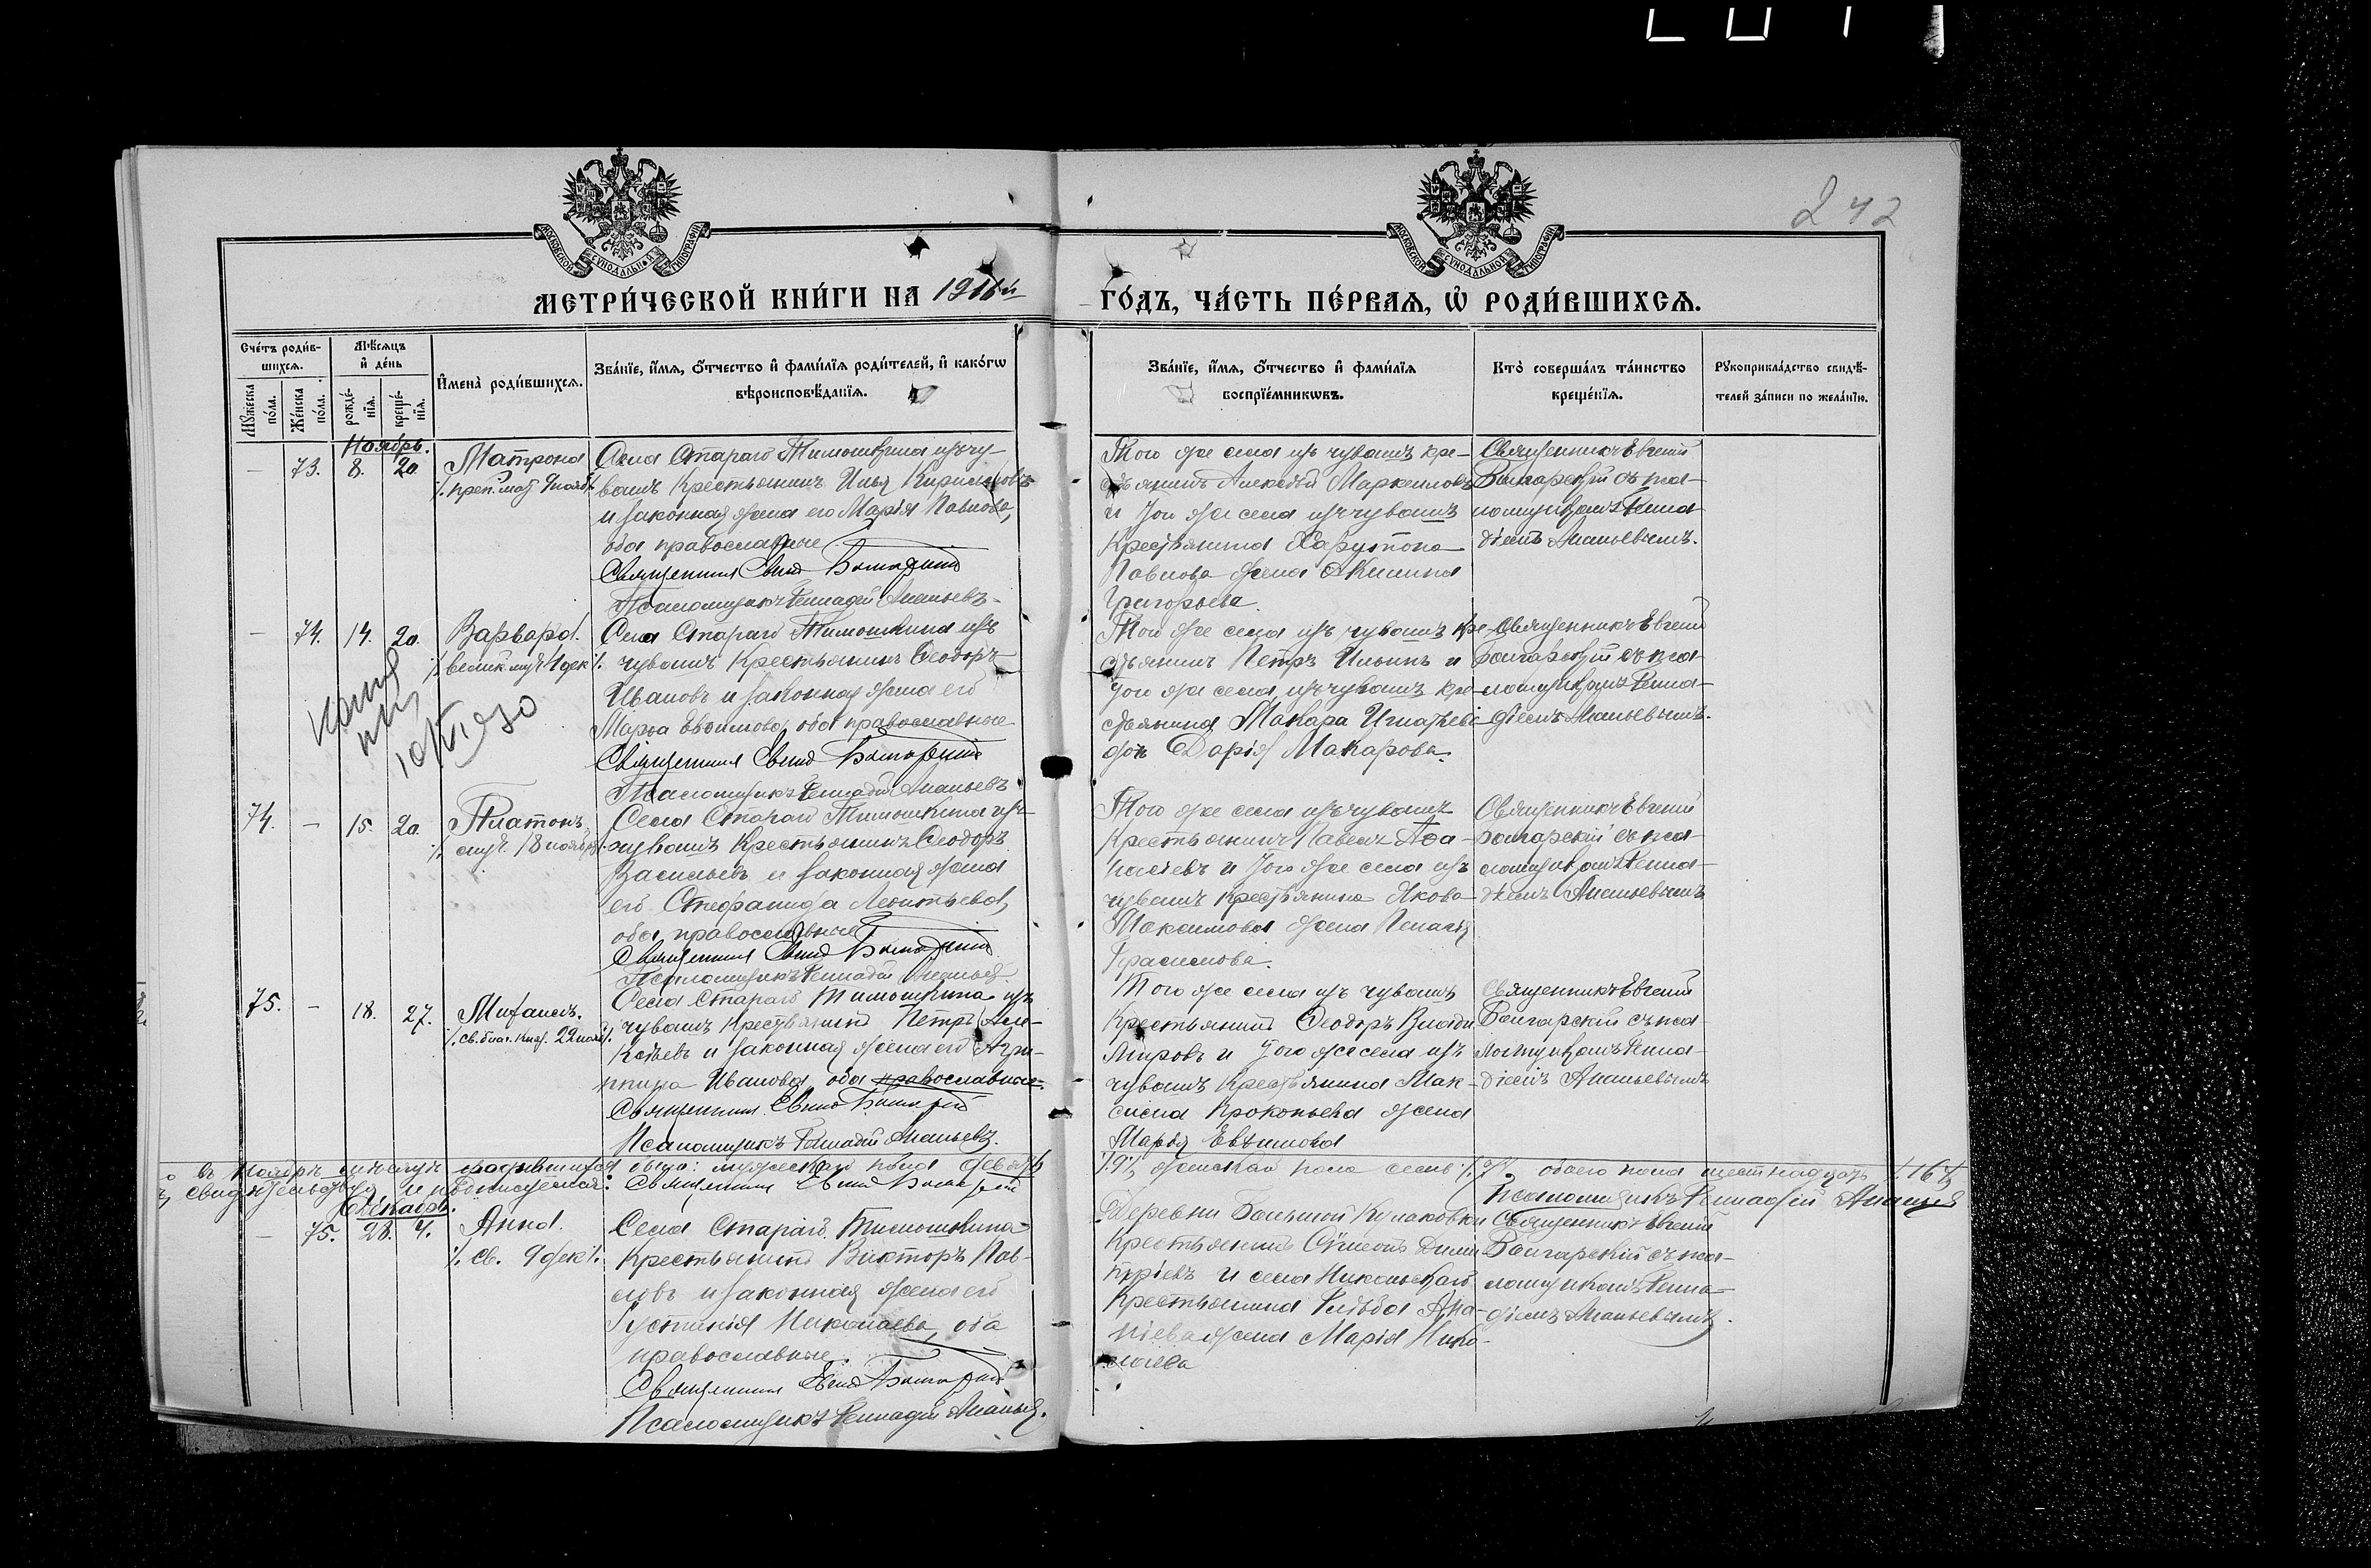 242
МЕТРИ́ЧЕСКОЙ КНИ́ГИ НА 1916й ГО́ДЪ, ЧА́СТЬ ПЕ́РВАѦ, Ѽ РОДИ́ВШИХСѦ.
МОСКОВСКОЙ СѴНОДАЛЬНОЙ ТИПОГРАФІИ
МОСКОВСКОЙ СѴНОДАЛЬНОЙ ТИПОГРАФІИ
Сче́тъ роди́вшихсѧ.
Мꙋ́жеска по́ла.
Же́нска по́ла.
Мѣ́сѧцъ и҆ де́нь
рожде́нїѧ.
креще́нїѧ.
И҆мена̀ роди́вшихсѧ.
Зва́нїе, и҆́мѧ, ѻ҆́тчество и҆ фами́лїѧ роди́телей, и҆ како́гѡ
вѣроисповѣ́данїѧ.
Зва́нїе, и҆́мѧ, ѻ҆́тчество и҆ фами́лїѧ
воспрїе́мникѡвъ.
Кто̀ соверша́лъ та́инство
креще́нїѧ.
Рꙋкоприкла́дство свидѣ́-
телей за́писи по жела́нїю.
Ноябрь.
— 73. 8. 20.
Матрона
/. преп. мат. 9 нояб./.
Села Стараго Тимошкина изъ чу-
вашъ крестьянинъ Илья Кирилловъ
и законная жена его Марія Павлова,
оба православные
Священникъ Евгеній Болгарскій
Псаломщикъ Геннадій Ананьевъ
Того же села изъ чувашъ кре-
стьянинъ Алексѣй Маркелловъ
и того же села изъ чувашъ
крестьянина Харитона
Павлова жена Акилина
Григорьева.
Священникъ Евгеній
Болгарскій съ пса-
ломщикомъ Генна-
діемъ Ананьевымъ.
— 74. 14. 20.
Варвара.
/. велик. муч. 4 дек./.
Села Стараго Тимошкина изъ
чувашъ крестьянинъ Ѳеодоръ
Ивановъ и законная жена его
Марья Евѳимова, оба православные
Священникъ Евгеній Болгарскій
Псаломщикъ Геннадій Ананьевъ
Того же села изъ чувашъ кре-
стьянинъ Петръ Ильинъ и
того же села, изъ чувашъ кре-
стьянина Макара Игнатьева
дочь Дарія Макарова.
Священникъ Евгеній
Болгарскій съ пса-
ломщикомъ Генна-
діемъ Ананьевымъ.
74. — 15. 20.
Платонъ,
/. муч. 18 ноября/.
Села Стараго Тимошкина изъ
чувашъ крестьянинъ Ѳеодоръ
Васильевъ и законная жена
его Стефанида Леонтьева,
оба православные
Священникъ Евгеній Болгарскій
Псаломщикъ Геннадій Ананьевъ
Того же села изъ чувашъ
крестьянинъ Павелъ Аѳа-
насіевъ и того же села изъ
чувашъ крестьянина Якова
Максимова жена Пелагія
Герасимова.
Священникъ Евгеній
Болгарскій съ пса-
ломщикомъ Генна-
діемъ Ананьевымъ
75. — 18. 27.
Михаилъ.
/. св. благ. княз. 22 нояб./.
Села Стараго Тимошкина изъ
чувашъ крестьянинъ Петръ Але-
ксѣевъ и законная жена его Агри-
пина Иванова, оба православные.
Священникъ Евгеній Болгарскій
Псаломщикъ Геннадій Ананьевъ.
Того же села изъ чувашъ
крестьянинъ Ѳеодоръ Влади-
мировъ и того же села изъ
чувашъ крестьянина Мак-
сима Прокопьева жена
Марья Евѳимова
Священникъ Евгеній
Болгарскій съ пса-
ломщикомъ Генна-
діемъ Ананьевымъ
въ ноябрѣ мѣсяцѣ родившихся было: мужескаго пола девять /.9/. женскаго пола семь /.7/. обоего пола шестнадцать /.16/.
свидѣтельствуемъ и подписуемся: Священникъ Евгеній Болгарскій
Псаломщикъ Геннадій Ананьевъ
Декабрь.
— 75. 28. 4.
Анна.
/. св. 9 дек./.
Села Стараго Тимошкина
крестьянинъ Викторъ Пав-
ловъ и законная жена его
Устинія Николаева, оба
православные.
Священникъ Евгеній Болгарскій
Псаломщикъ Геннадій Ананьевъ.
Деревни Большой Кулаковки
крестьянинъ Сѵмеонъ Дими-
тріевъ и села Никольскаго
крестьянина Глѣба Ана-
ніева жена Марія Нико-
лаева
Священникъ Евгеній
Болгарскій съ пса-
ломщикомъ Генна-
діемъ Ананьевымъ.